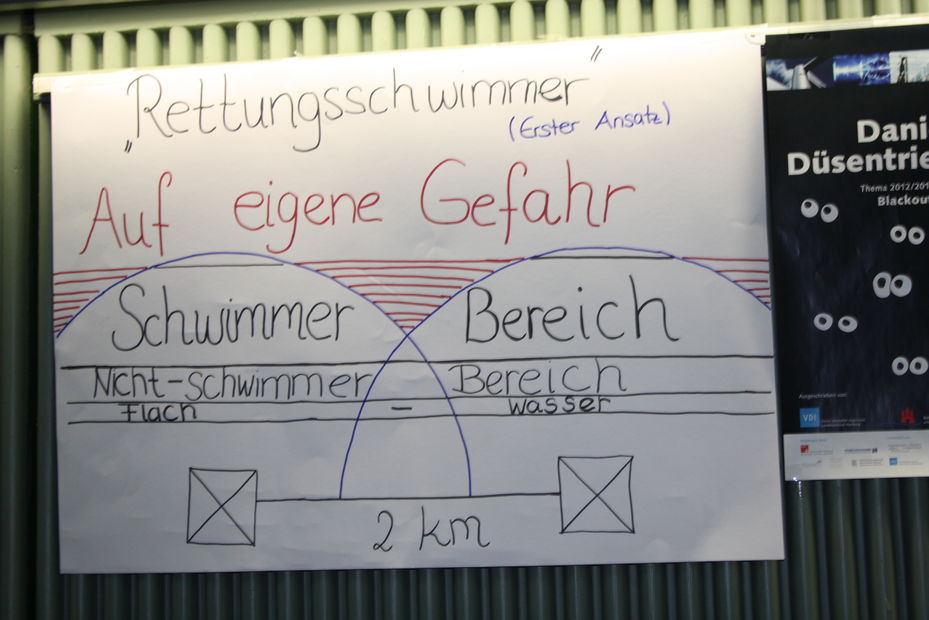 „Rettungsschwimmer"
(Erster Ansatz)
Auf eigene Gefahr
Schwimmer Bereich
Nicht-schwimmer Bereich
Flach - wasser
2 km
Dani
Düsentrie
Thema 2012/201
Blackou
Ausgeschrieben von:
VDI